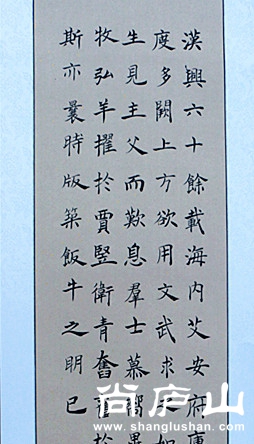 漢興六十餘載海内艾安府庫
度多闕上方欲用文武求之如
生見主父而歎息羣士慕嚮異
牧弘羊擢於賈豎衛青奮於
斯亦曩時版築飯牛之明已
尚庐山
www.shanglushan.com